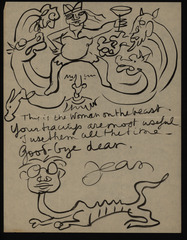 This is the Woman on the beast.
Your tracings are most useful
I use them all the time —
Good-bye dear.
Jean